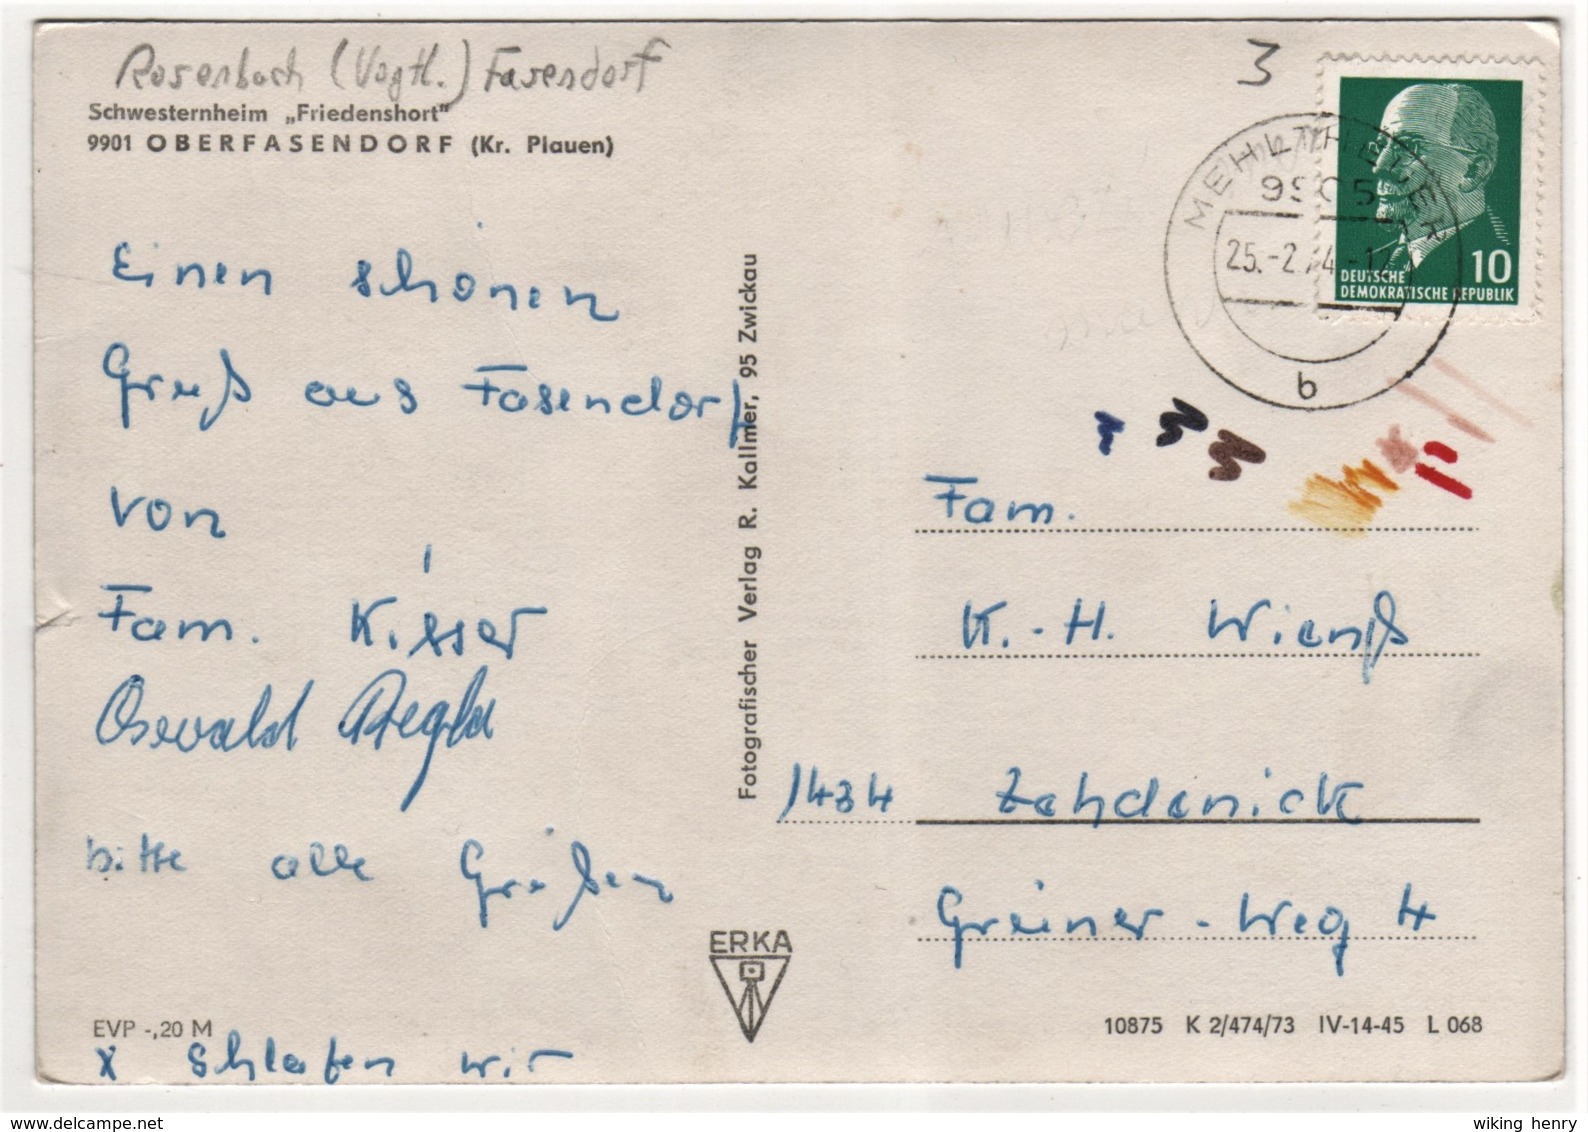 Rosenbach (Vogtl.) Fasendorf
Schwesternheim „Friedenshort"
9901 OBERFASENDORF (Kr. Plauen)
Einen schönen
Gruß aus Fasendorf
von
Fam. Kisser
Oswald
bitte alle Grüßen
EVP -,20 M
x schlafen wir
Fotografischer Verlag R. Kallmer, 95 Zwickau
ERKA
3
MEHLTHEUER
9905
25.-2.74.-17
b
10
DEUTSCHE
DEMOKRATISCHE REPUBLIK
Fam.
K.-H. Wienß
1434 Zehdenick
Greiner-Weg 4
10875 K 2/474/73 IV-14-45 L 068
wiking henry